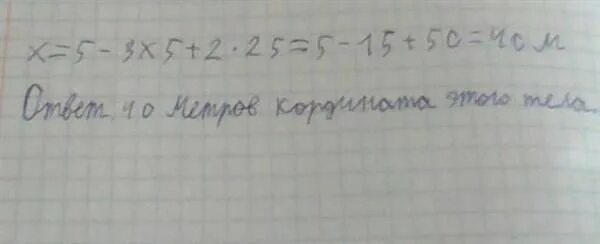 x=5-3x5+2·25=5-15+50=40м
Ответ, 40 метров кордината этого тела.